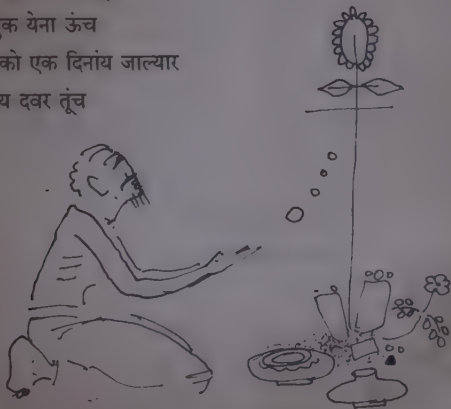 क येना ऊंच
को एक दिनांय जाल्यार
य दवर तूंच